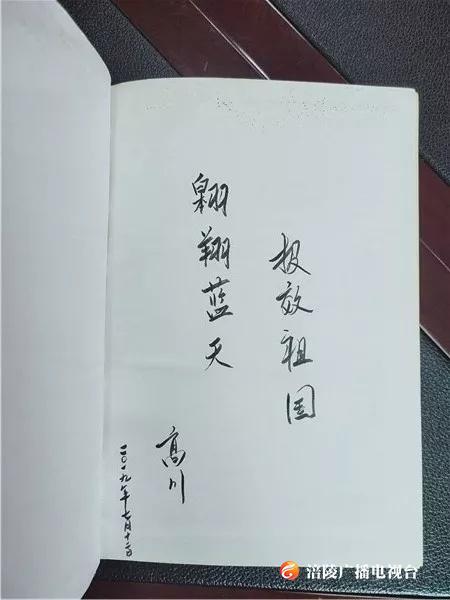 报效祖国
翱翔蓝天
高川
二〇一九年七月十二日
涪陵广播电视台